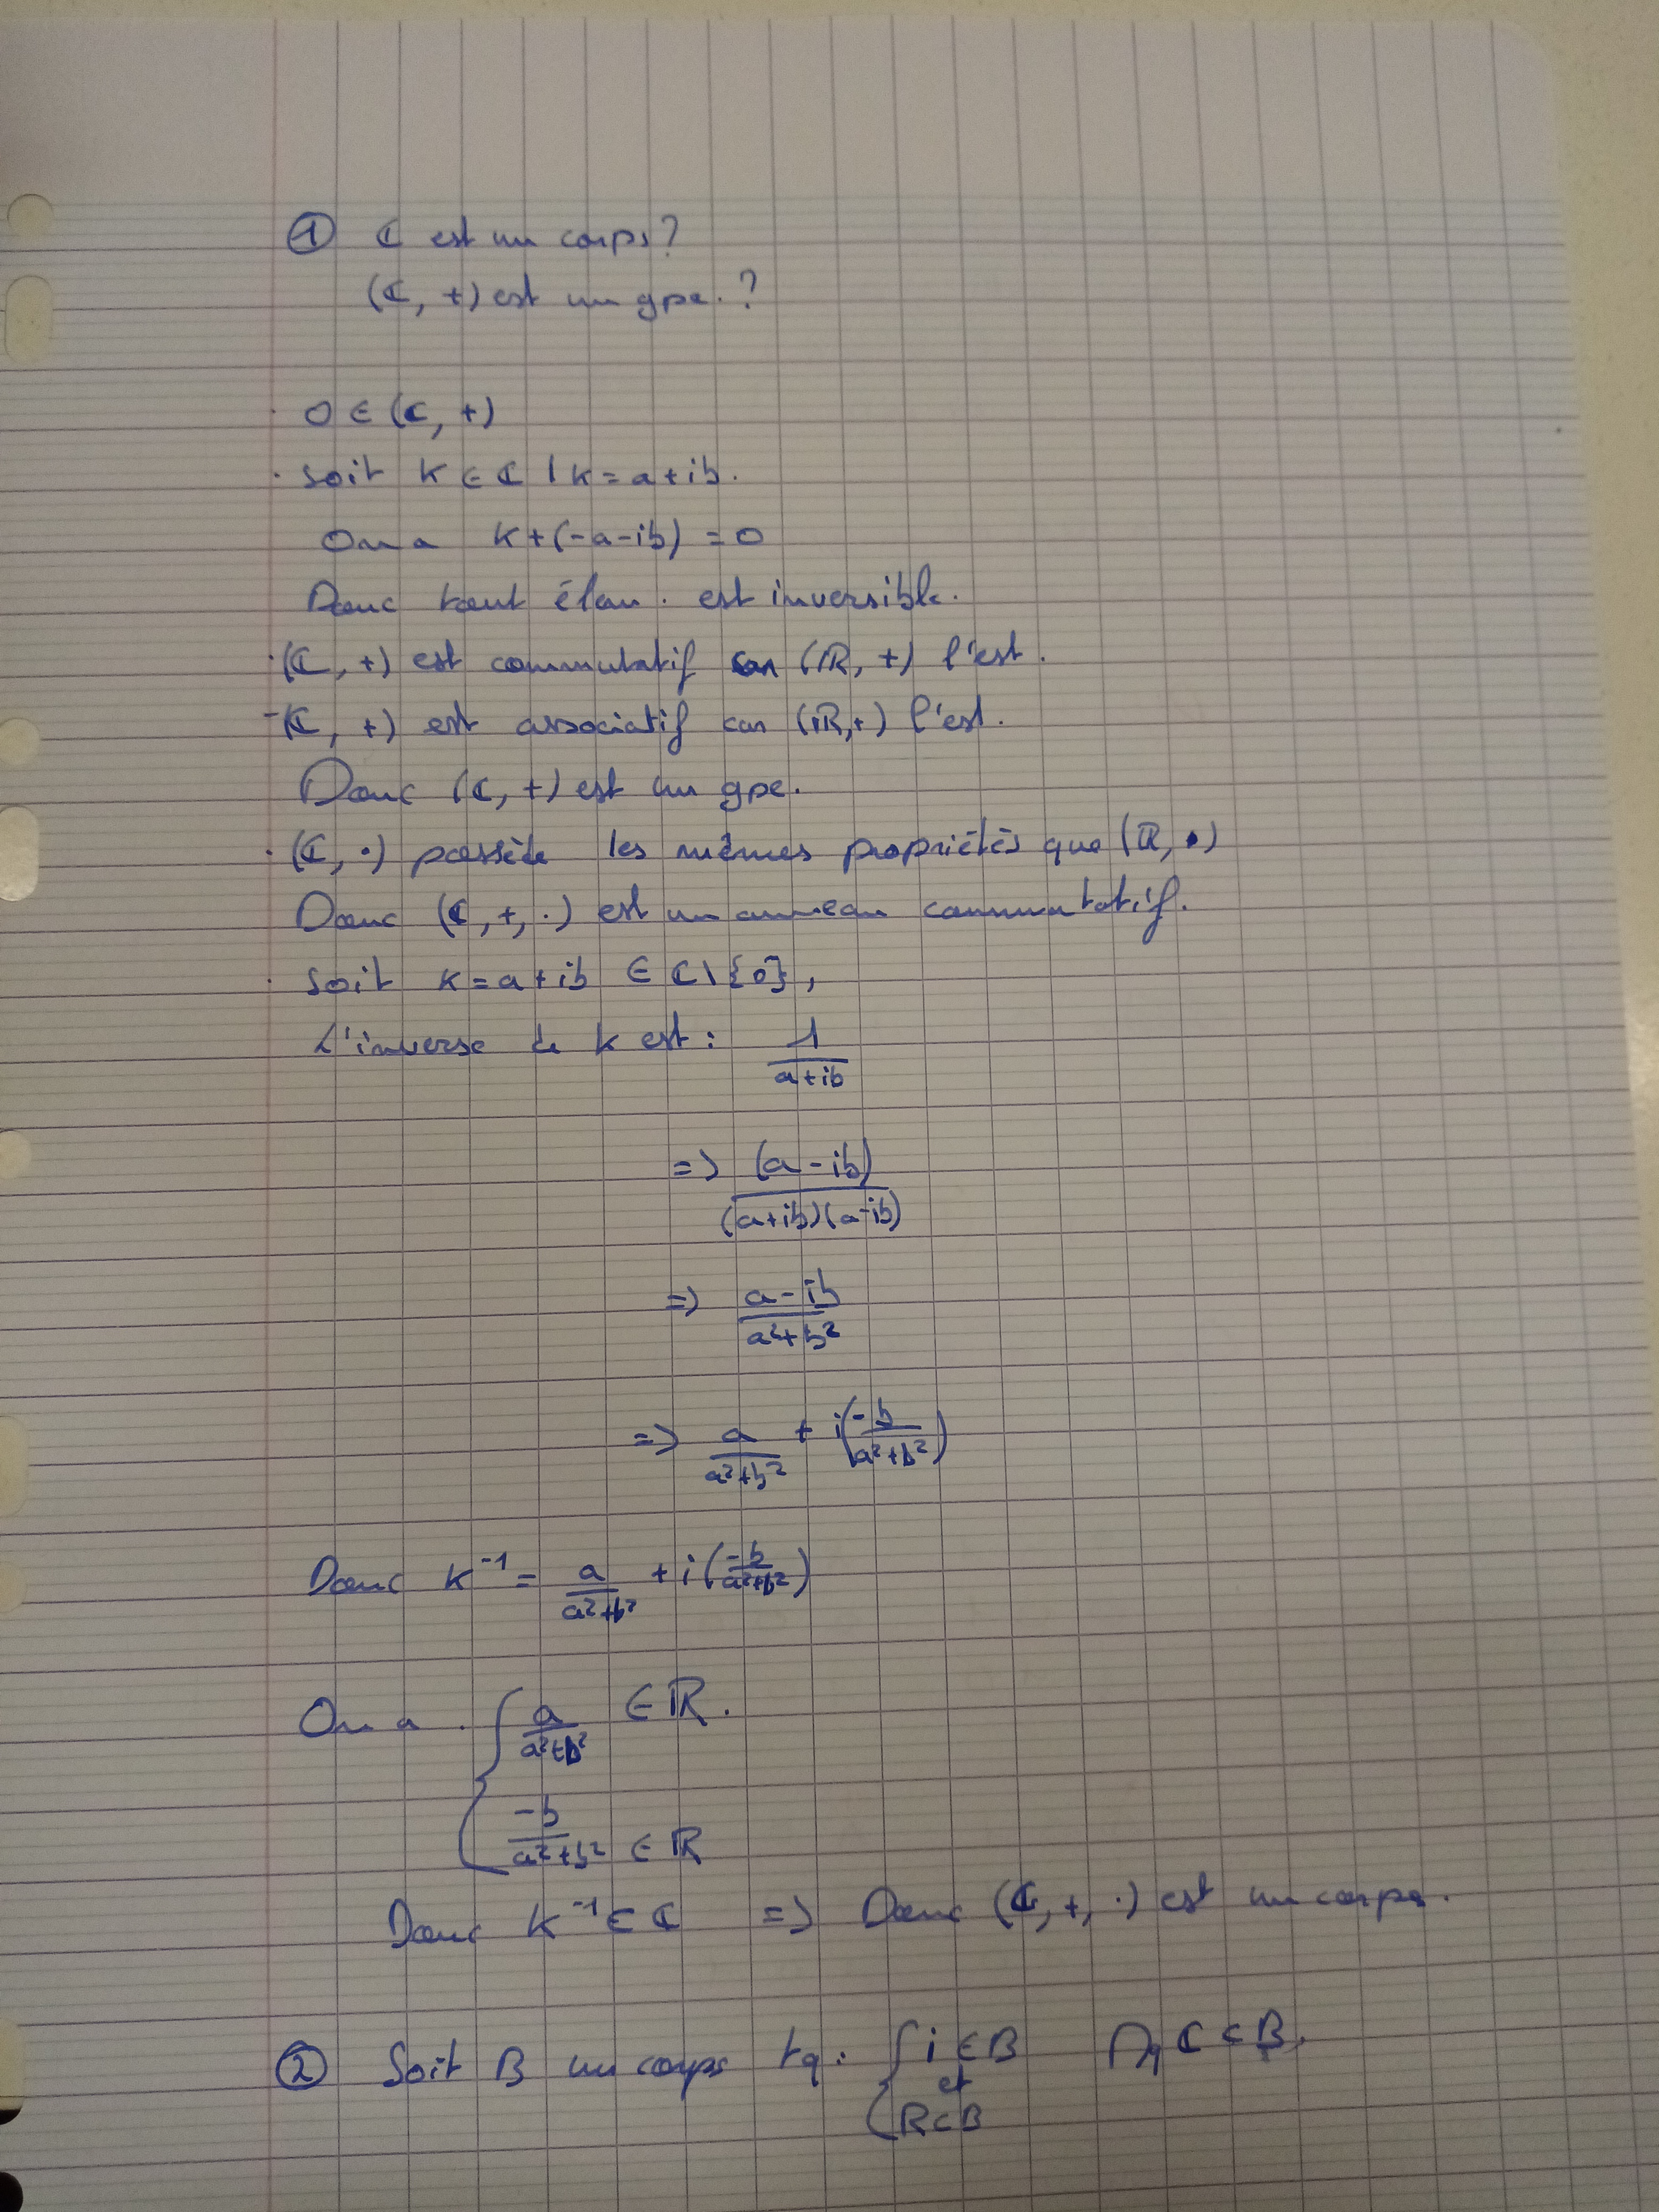 ① ℂ est un corps?
(ℂ, +) est un gpe.?
· 0 ∈ (ℂ, +)
· Soit K ∈ ℂ | K = a + ib.
On a K + (-a - ib) = 0
Donc tout élém. est inversible.
· (ℂ, +) est commutatif car (ℝ, +) l'est.
- (ℂ, +) est associatif car (ℝ, +) l'est.
Donc (ℂ, +) est un gpe.
· (ℂ, ·) possède les mêmes propriétés que (ℝ, ·)
Donc (ℂ, +, ·) est un anneau commutatif.
· Soit K = a + ib ∈ ℂ \ {0},
L'inverse de K est : 1/(a + ib)
=> (a - ib)/((a + ib)(a - ib))
=> (a - ib)/(a² + b²)
=> a/(a² + b²) + i(-b/(a² + b²))
Donc K⁻¹ = a/(a² + b²) + i(-b/(a² + b²))
On a . { a/(a² + b²) ∈ ℝ.
-b/(a² + b²) ∈ ℝ
Donc K⁻¹ ∈ ℂ => Donc (ℂ, +, ·) est un corps.
② Soit B un corps tq : { i ∈ B et ℝ ⊂ B Mq ℂ ⊂ B.